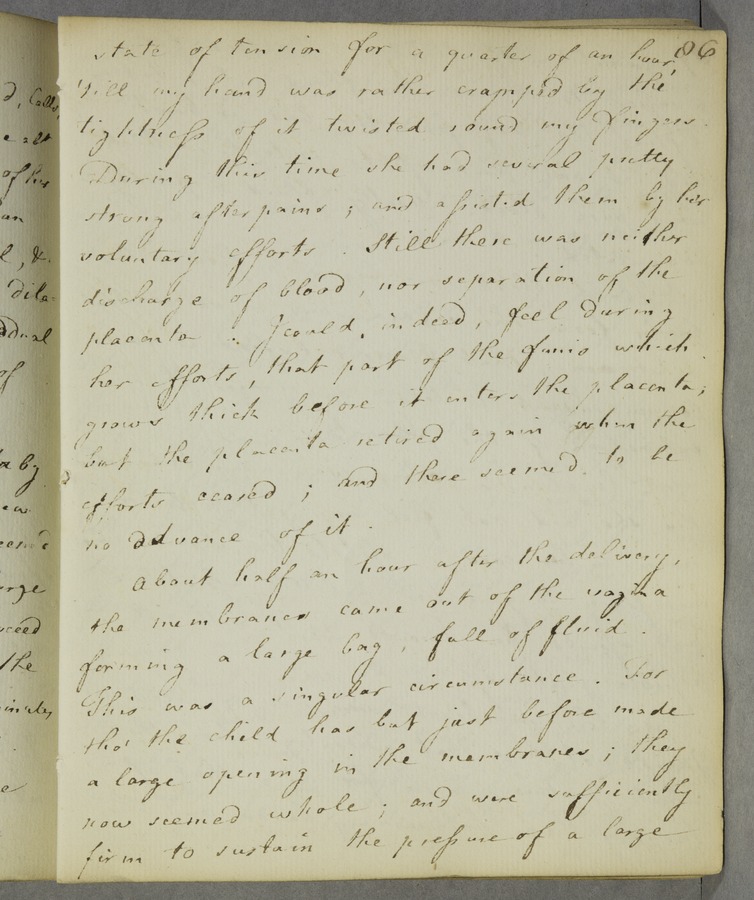 86
state of tension for a quarter of an hour,
'till my hand was rather crampp'd by the
tightness of it twisted round my fingers.
During this time she had several pretty
strong afterpains; and assisted them by her
voluntary efforts. Still there was neither
discharge of blood, nor separation of the
placenta. I could, indeed, feel during
her efforts, that part of the funis which
grows thick before it enters the placenta;
but the placenta retired again when the
efforts ceased; and there seemed to be
no advance of it.
About half an hour after the delivery,
the membranes came out of the vagina
forming a large bag, full of fluid.
This was a singular circumstance. For
tho' the child has but just before made
a large opening in the membranes; they
now seemed whole; and were sufficiently
firm to sustain the pressure of a large